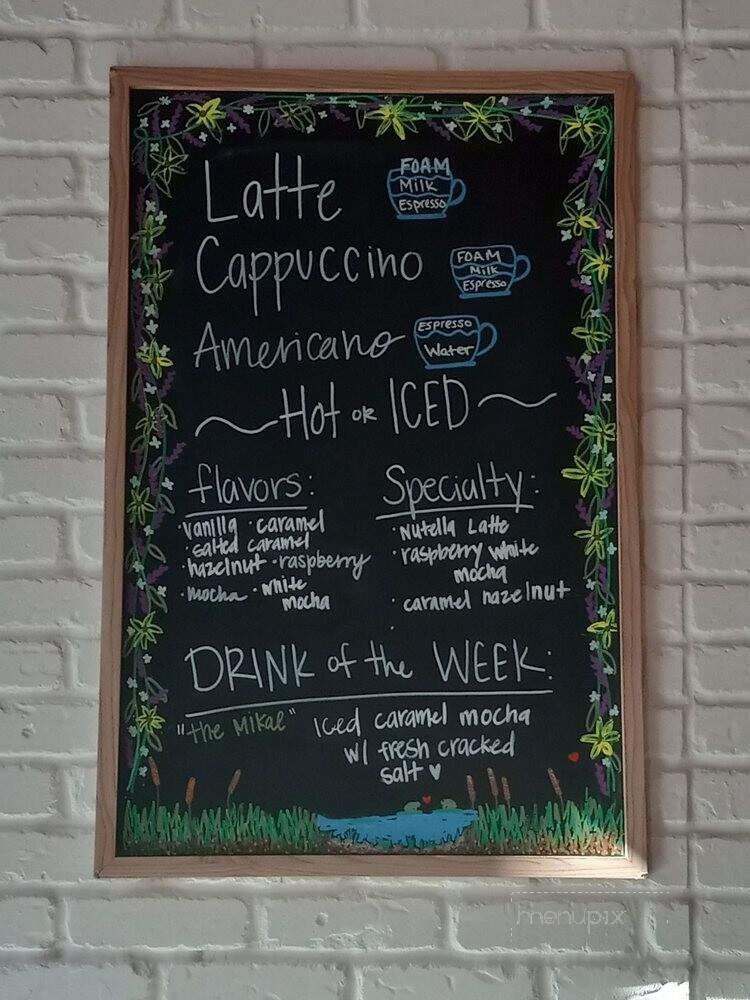 Latte
FOAM
Milk
Espresso
Cappuccino
FOAM
Milk
Espresso
Americano
Espresso
Water
Hot OR ICED
flavors:
·vanilla ·caramel
·salted caramel
·hazelnut ·raspberry
·mocha ·white
mocha
Specialty:
·Nutella Latte
·raspberry white
mocha
·caramel hazelnut
DRINK of the WEEK:
"the Mikae" Iced caramel mocha
w/ fresh cracked
salt ♥
menupix